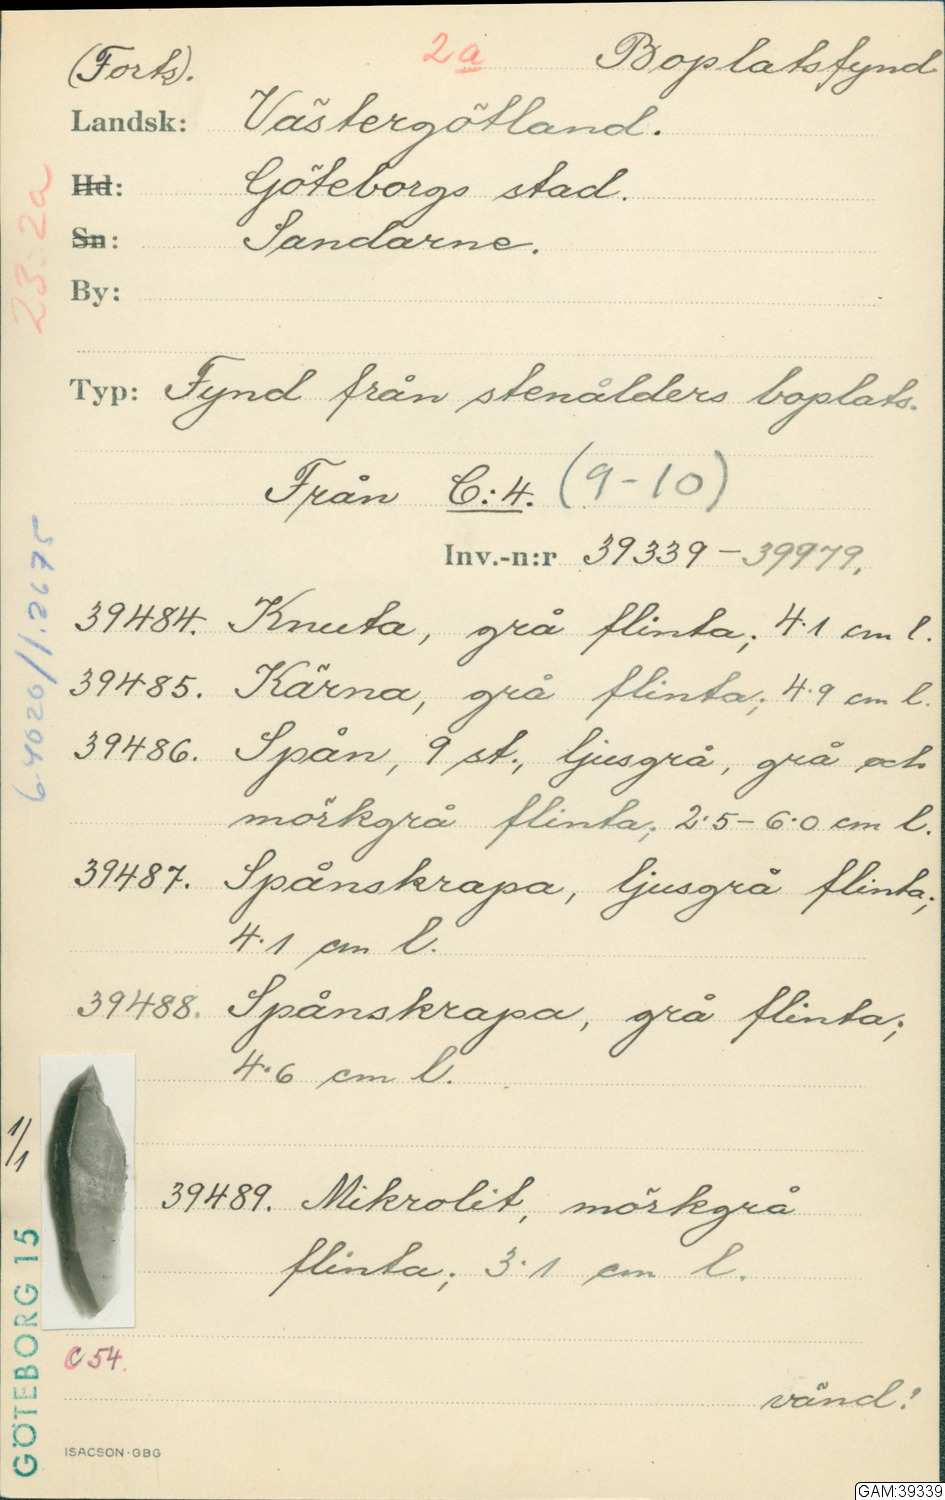 (Forts). 2a Boplatsfynd
Landsk: Västergötland.
Hd: Göteborgs stad.
Sn: Sandarne.
By:
Typ: Fynd från stenålders boplats.
Från C:4. (9-10)
Inv.-n:r 39339-39979.
39484. Knuta, grå flinta; 4·1 cm l.
39485. Kärna, grå flinta; 4·9 cm l.
39486. Spån, 9 st., ljusgrå, grå och
mörkgrå flinta; 2·5-6·0 cm l.
39487. Spånskrapa, ljusgrå flinta;
4·1 cm l.
39488. Spånskrapa, grå flinta;
4·6 cm l.
1/1
39489. Mikrolit, mörkgrå
flinta; 3·1 cm l.
C 54.
vänd!
ISACSON·GBG
23:2a
64020/1.2675
GÖTEBORG 15
GAM:39339